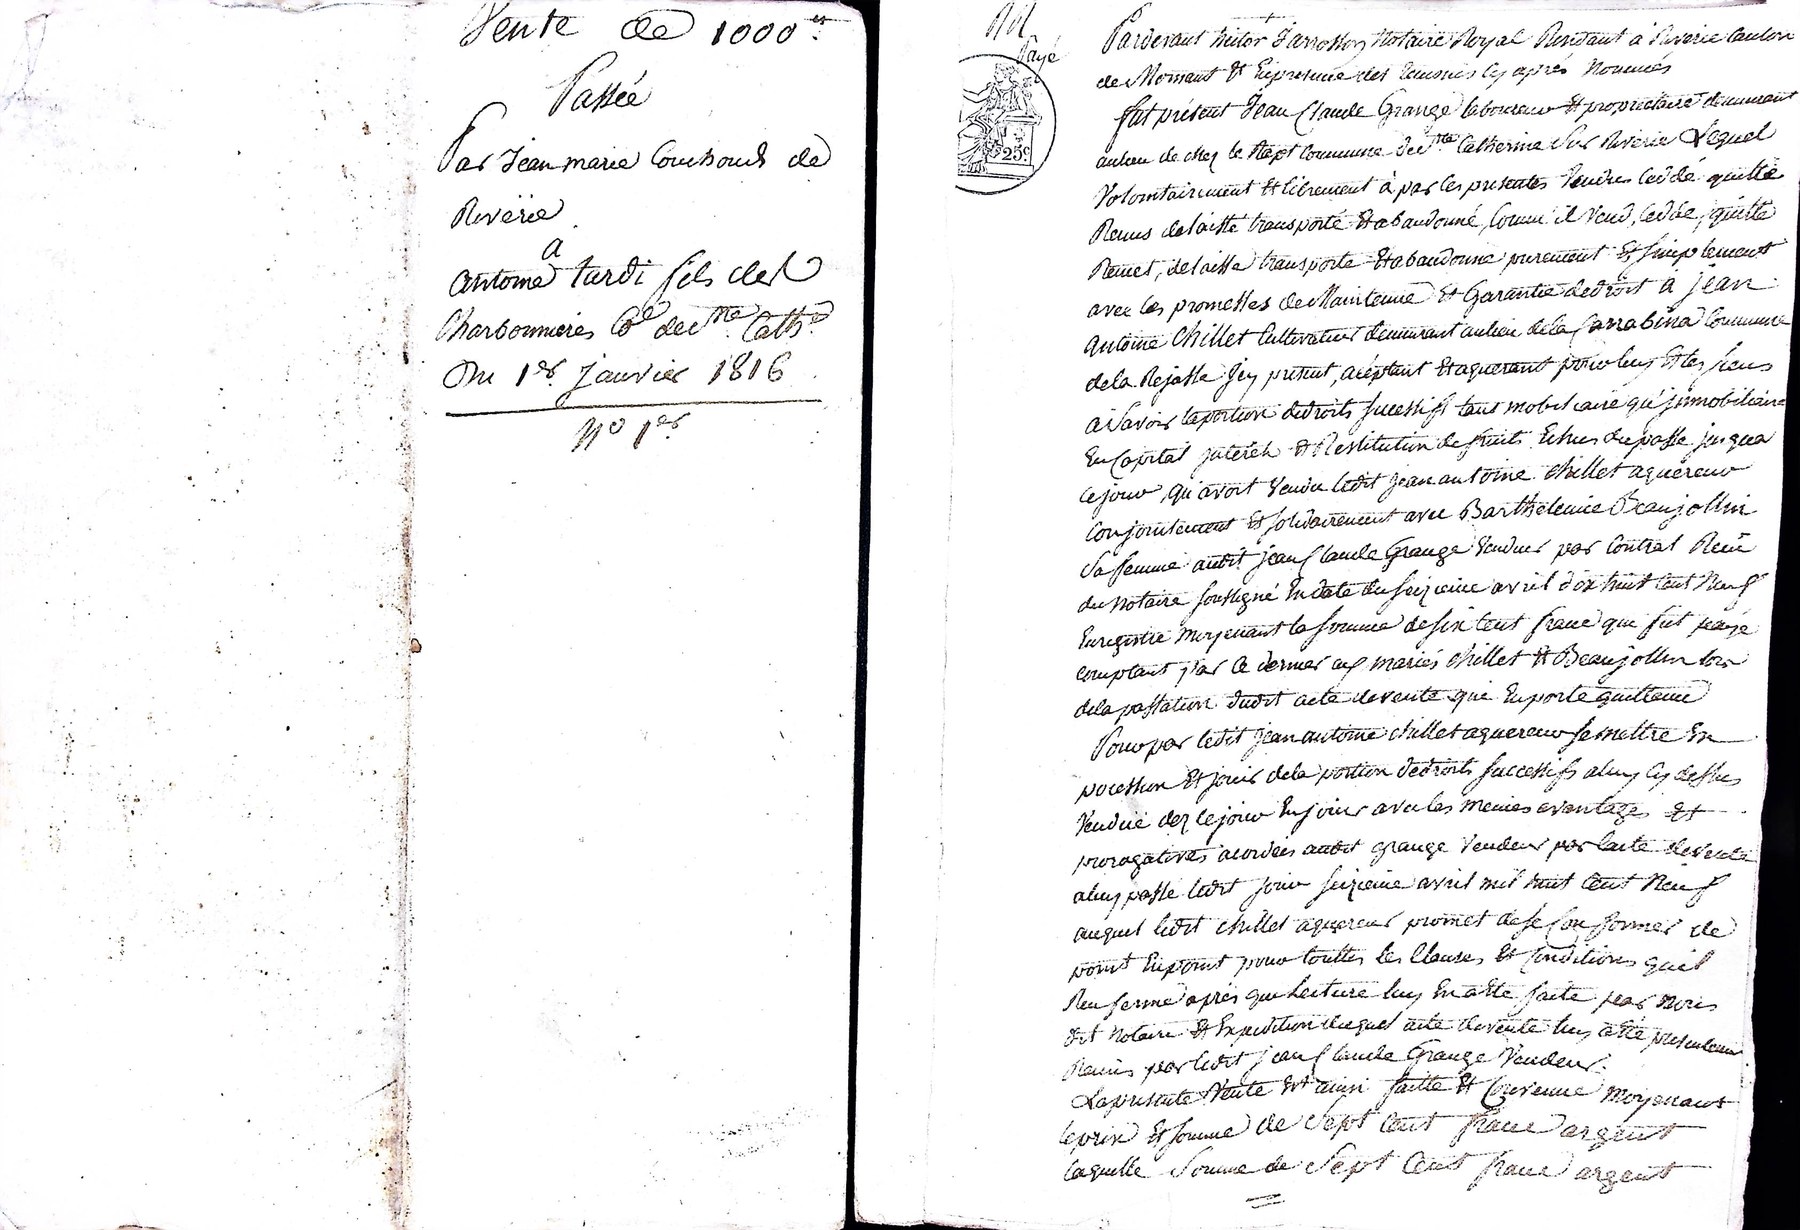 Vente de 1000 es
Passée
Par Jean marie Couchoud de
Riverie
a
antoine tardi fils de
Charbonnieres Ce de Ste Cathe
Du 1er janvier 1816
No 1er
Payé
25c
Pardevant notaire Royal Residant à Riverie canton
de Mornant Et En presence des temoins cy après Nommés
fut présent Jean Claude Grange laboureur Et propriétaire demeurant
au lieu de chez le commune de Ste Catherine Sur Riverie Lequel
Volontairement Et librement à par ces presentes Vendu Ceddé quitté
Remis delaissé transporté Et abandonné, Comme il Vend, Cedde, quitte
Remet, delaisse transporte Et abandonne purement Et simplement
avec les promesses de Maintenue Et Garantie de droit à jean
antoine Chillet Cultivateur demeurant au lieu de la Carrabina Commune
de la Rajasse jcy présent, acéptant Et aquerant pour luy Et les siens
à Savoir la portion de droits sucessifs tant mobiliaire qu'jmmobiliaire
En Capital jnterêts Et Restitution de fruits Echus du passé jusqu'a
ce jour, qu'avoit Vendu ledit jean antoine Chillet aquereur
Conjointement Et solidairement avec Barthelemie Beaujollin
Sa femme audit jean Claude Grange Vendeur par Contrat Reçu
du notaire soussigné En date du seizieme avril dix huit cent Neuf
Enregistré moyenant la somme de six cent franc que fut payé
comptant par ce dernier aux mariés Chillet Et Beaujollin lors
de la passation dudit acte de vente qui En porte quittance
Pour par ledit jean antoine chillet aquereur se mettre En
possession Et jouir de la portion de droits successifs a luy cy dessus
Vendüe dez ce jour En jouir avec les memes avantages et
prorogatives acordées audit grange Vendeur par l'acte de vente
a luy passé ledit jour seizieme avril mil huit Cent Neuf
auquel ledit chillet aquereur promet de se Conformer de
point En point pour touttes les Clauses Et Conditions qu'il
Renferme après que lecture luy En a Eté faite par nous
dit Notaire Et Expedition duquel acte de vente luy a Eté presentement
Remis par ledit jean Claude Grange Vendeur.
La presente Vente Est ainsi faitte Et Convenue moyenant
le prix Et somme de Sept Cent franc argent
laquelle Somme de Sept Cent franc argent